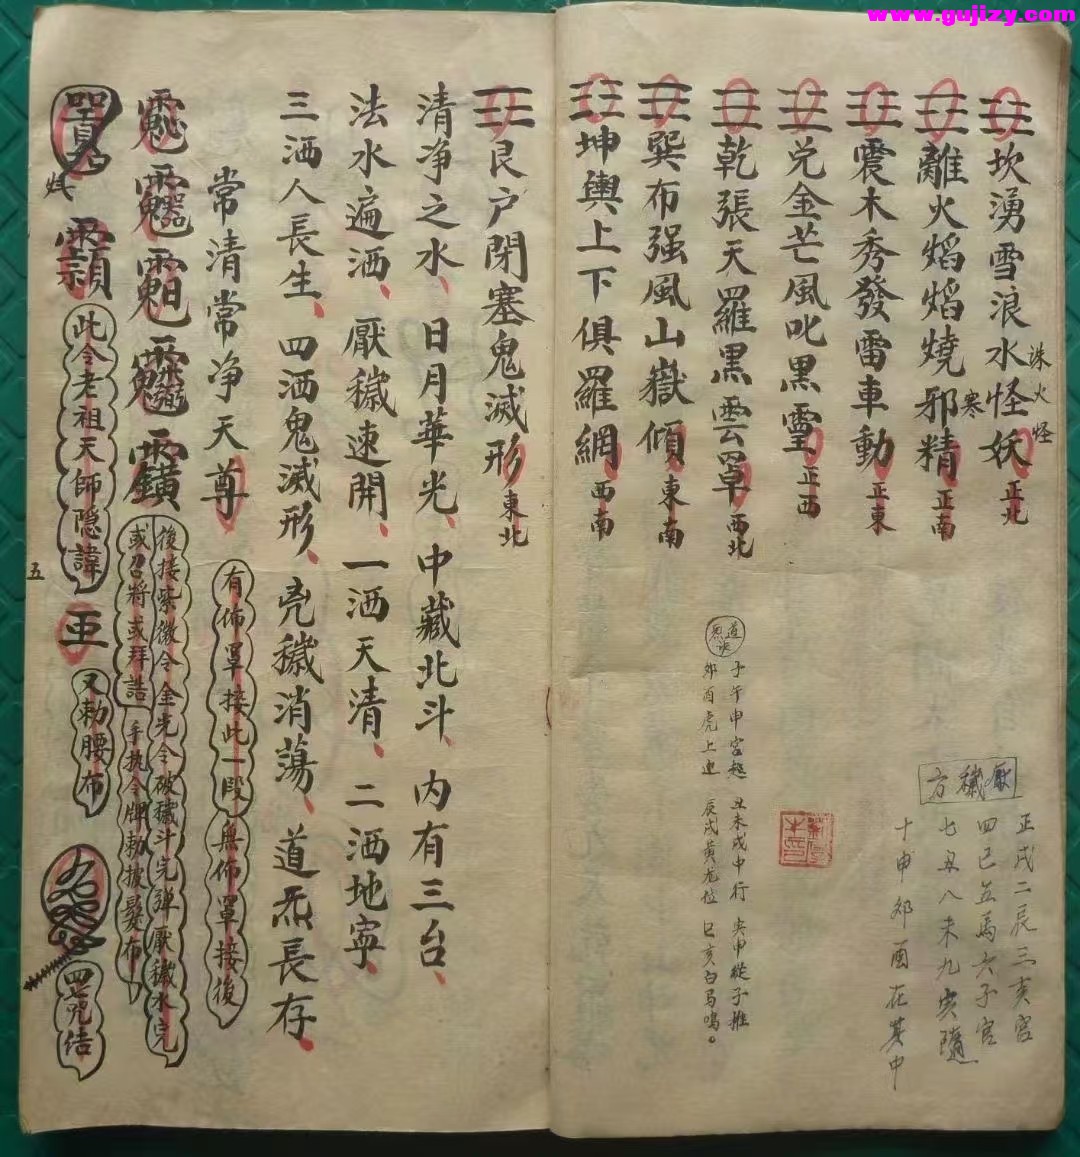 www.gujizy.com
坎湧雪浪水怪妖 正北
誅火怪
離火熖熖燒邪精 正南
寒
震木秀發雷車動 正東
兌金芒風叱黑霊 正西
乾張天羅黑雲罩 西北
巽布强風山嶽傾 東南
坤輿上下俱羅網 西南
厭穢方
正戌二辰三亥宫
四巳五馬六子宫
七丑八未九寅隨
十申卯酉在其中
子午申宫起 丑未戌中行 寅申從子推
卯酉虎上迎 辰戌黄龙位 巳亥白马鸣。
艮户閉塞鬼滅形 東北
清净之水、日月華光、中藏北斗、内有三台、
法水遍洒、厭穢速開、一洒天清、二洒地寧、
三洒人長生、四洒鬼滅形、尭穢消蕩、道炁長存、
常清常净天尊
有佈罩接此一段無佈罩接後
後接紫微令金光令破穢斗完弹厭穢水完
或召將或拜誥手执令牌勅披髮布
此令老祖天師隐諱
又勅腰布
咒结
五